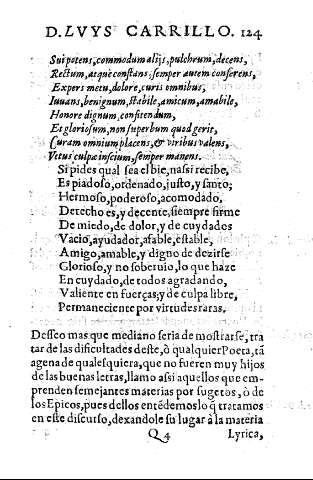 D. LVYS CARRILLO. 124
Sui potens, commodum alijs, pulchrum, decens,
Rectum, atque constans: semper autem conferens,
Expers metu, dolore, curis omnibus,
Iuuans, benignum, stabile, amicum, amabile,
Honore dignum, confitendum,
Et gloriosum, non superbum quod gerit,
Curam omnium placens, & viribus valens,
Vetus culpæ inscium, semper manens.
Si pides qual sea el bie, nassi recibe,
Es piadoso, ordenado, justo, y santo;
Hermoso, poderoso, acomodado,
Derecho es, y decente, siempre firme
De miedo, de dolor, y de cuydados
Vacio, ayudador, afable, estable,
Amigo, amable, y digno de dezirse
Glorioso, y no soberuio, lo que haze
En cuydado, de todos agradando,
Valiente en fuerças, y de culpa libre,
Permaneciente por virtudes raras.
Desseo mas que mediano seria de mostrarse, tra
tar de las dificultades deste, ò qualquier Poeta, tã
agena de qualesquiera, que no fueren muy hijos
de las buenas letras, llamo assi aquellos que em-
prenden semejantes materias por sugetos, ò de
los Epicos, pues dellos entẽdemos lo q̃ tratamos
en este discurso, dexandole su lugar à la materia
Q 4 Lyrica,